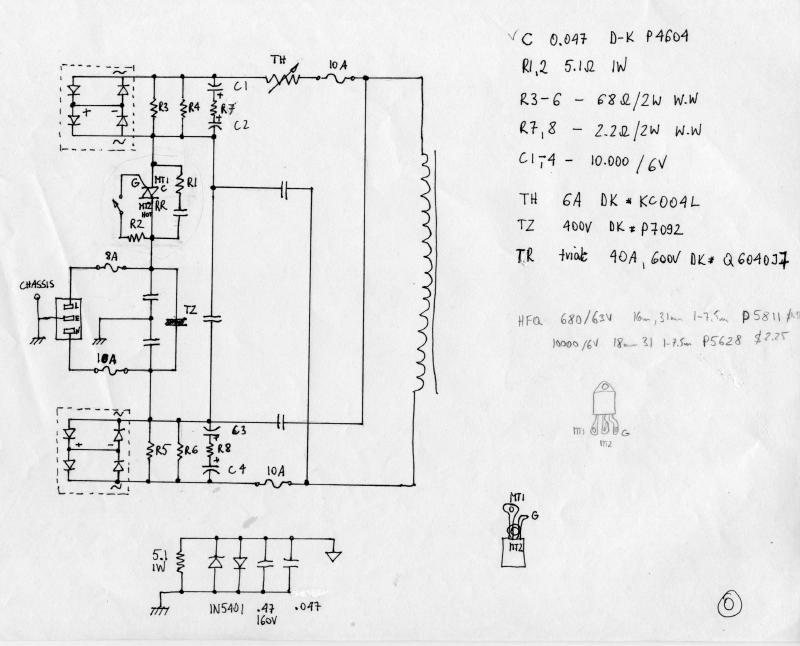 TH
10A
C1
R3
R4
R7
C2
+
-
~
~
G
MT1
C
MT2
HOT
RR
R1
R2
8A
CHASSIS
L
E
N
TZ
10A
~
+
-
~
C3
R5
R6
R8
C4
10A
5.1
1W
1N5401
.47
160V
.047
C 0.047 D-K P4604
R1,2 5.1Ω 1W
R3-6 - 68Ω/2W W.W
R7,8 - 2.2Ω/2W W.W
C1-4 - 10.000/6V
TH 6A DK * KC004L
TZ 400V DK * P7092
TR triak 40A, 600V DK* Q6040J7
HFQ 680/63V 16m, 31m 1-7,5m P5811
10000/6V 18m 31 1-7.5m P5628 $2.25
MT1
M2
G
MT1
G
MT2
0